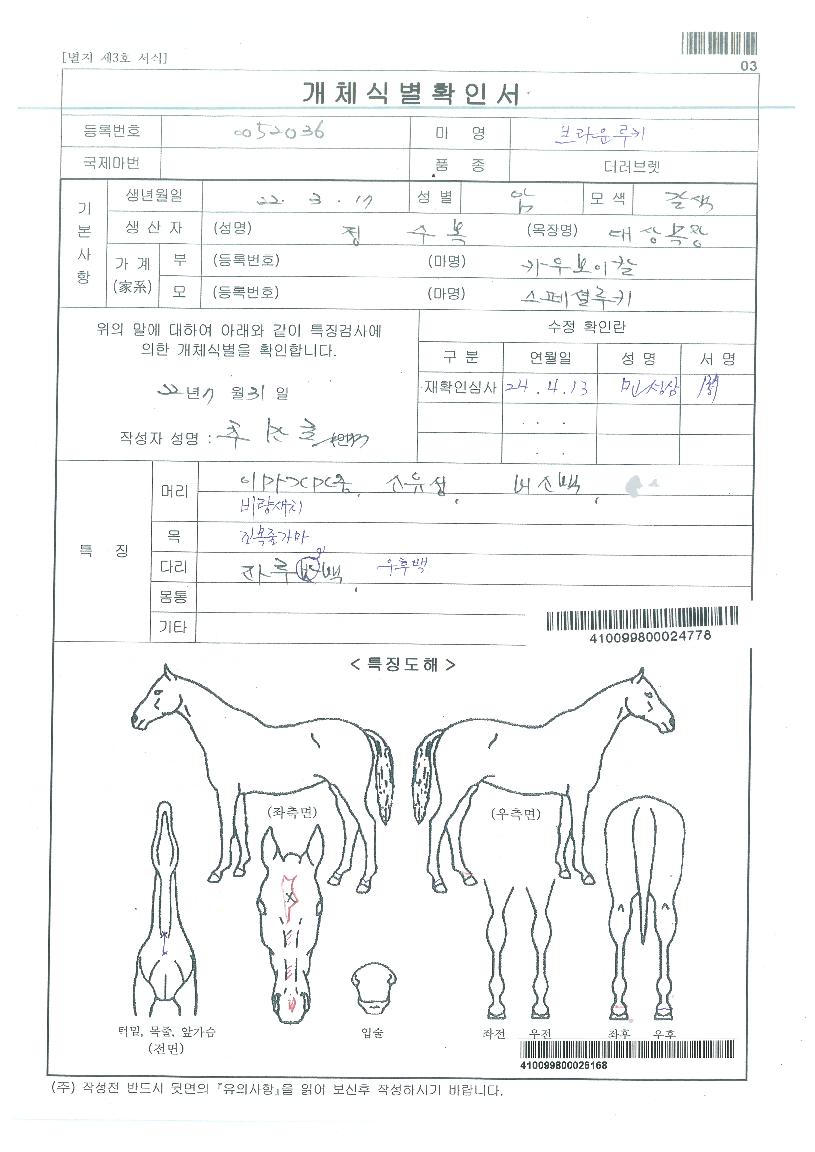 [별지 제3호 서식]
03
개체식별확인서
등록번호 0052036 마 명 브라운루키
국제마번 품 종 더러브렛
기본사항
생년월일 22. 3. 17 성별 암 모색 갈색
생산자 (성명) 정수복 (목장명) 대상목장
가계 (家系) 부 (등록번호) (마명) 카우보이칼
모 (등록번호) (마명) 스페셜루키
위의 말에 대하여 아래와 같이 특징검사에
의한 개체식별을 확인합니다.
22년 7 월 31 일
작성자 성명 :
수정 확인란
구 분 연월일 성 명 서 명
재확인심사 24 . 4. 13
. . .
. . .
특 징
머리 유성, 비소백,
비량새치
목 전목줄가마
다리 좌후 백 우후백
몸통
기타
410099800024778
< 특징도해 >
(좌측면) (우측면)
턱밑, 목줄, 앞가슴
(전면)
입술
좌전 우전 좌후 우후
410099800026168
(주) 작성전 반드시 뒷면의 『유의사항』을 읽어 보신후 작성하시기 바랍니다.